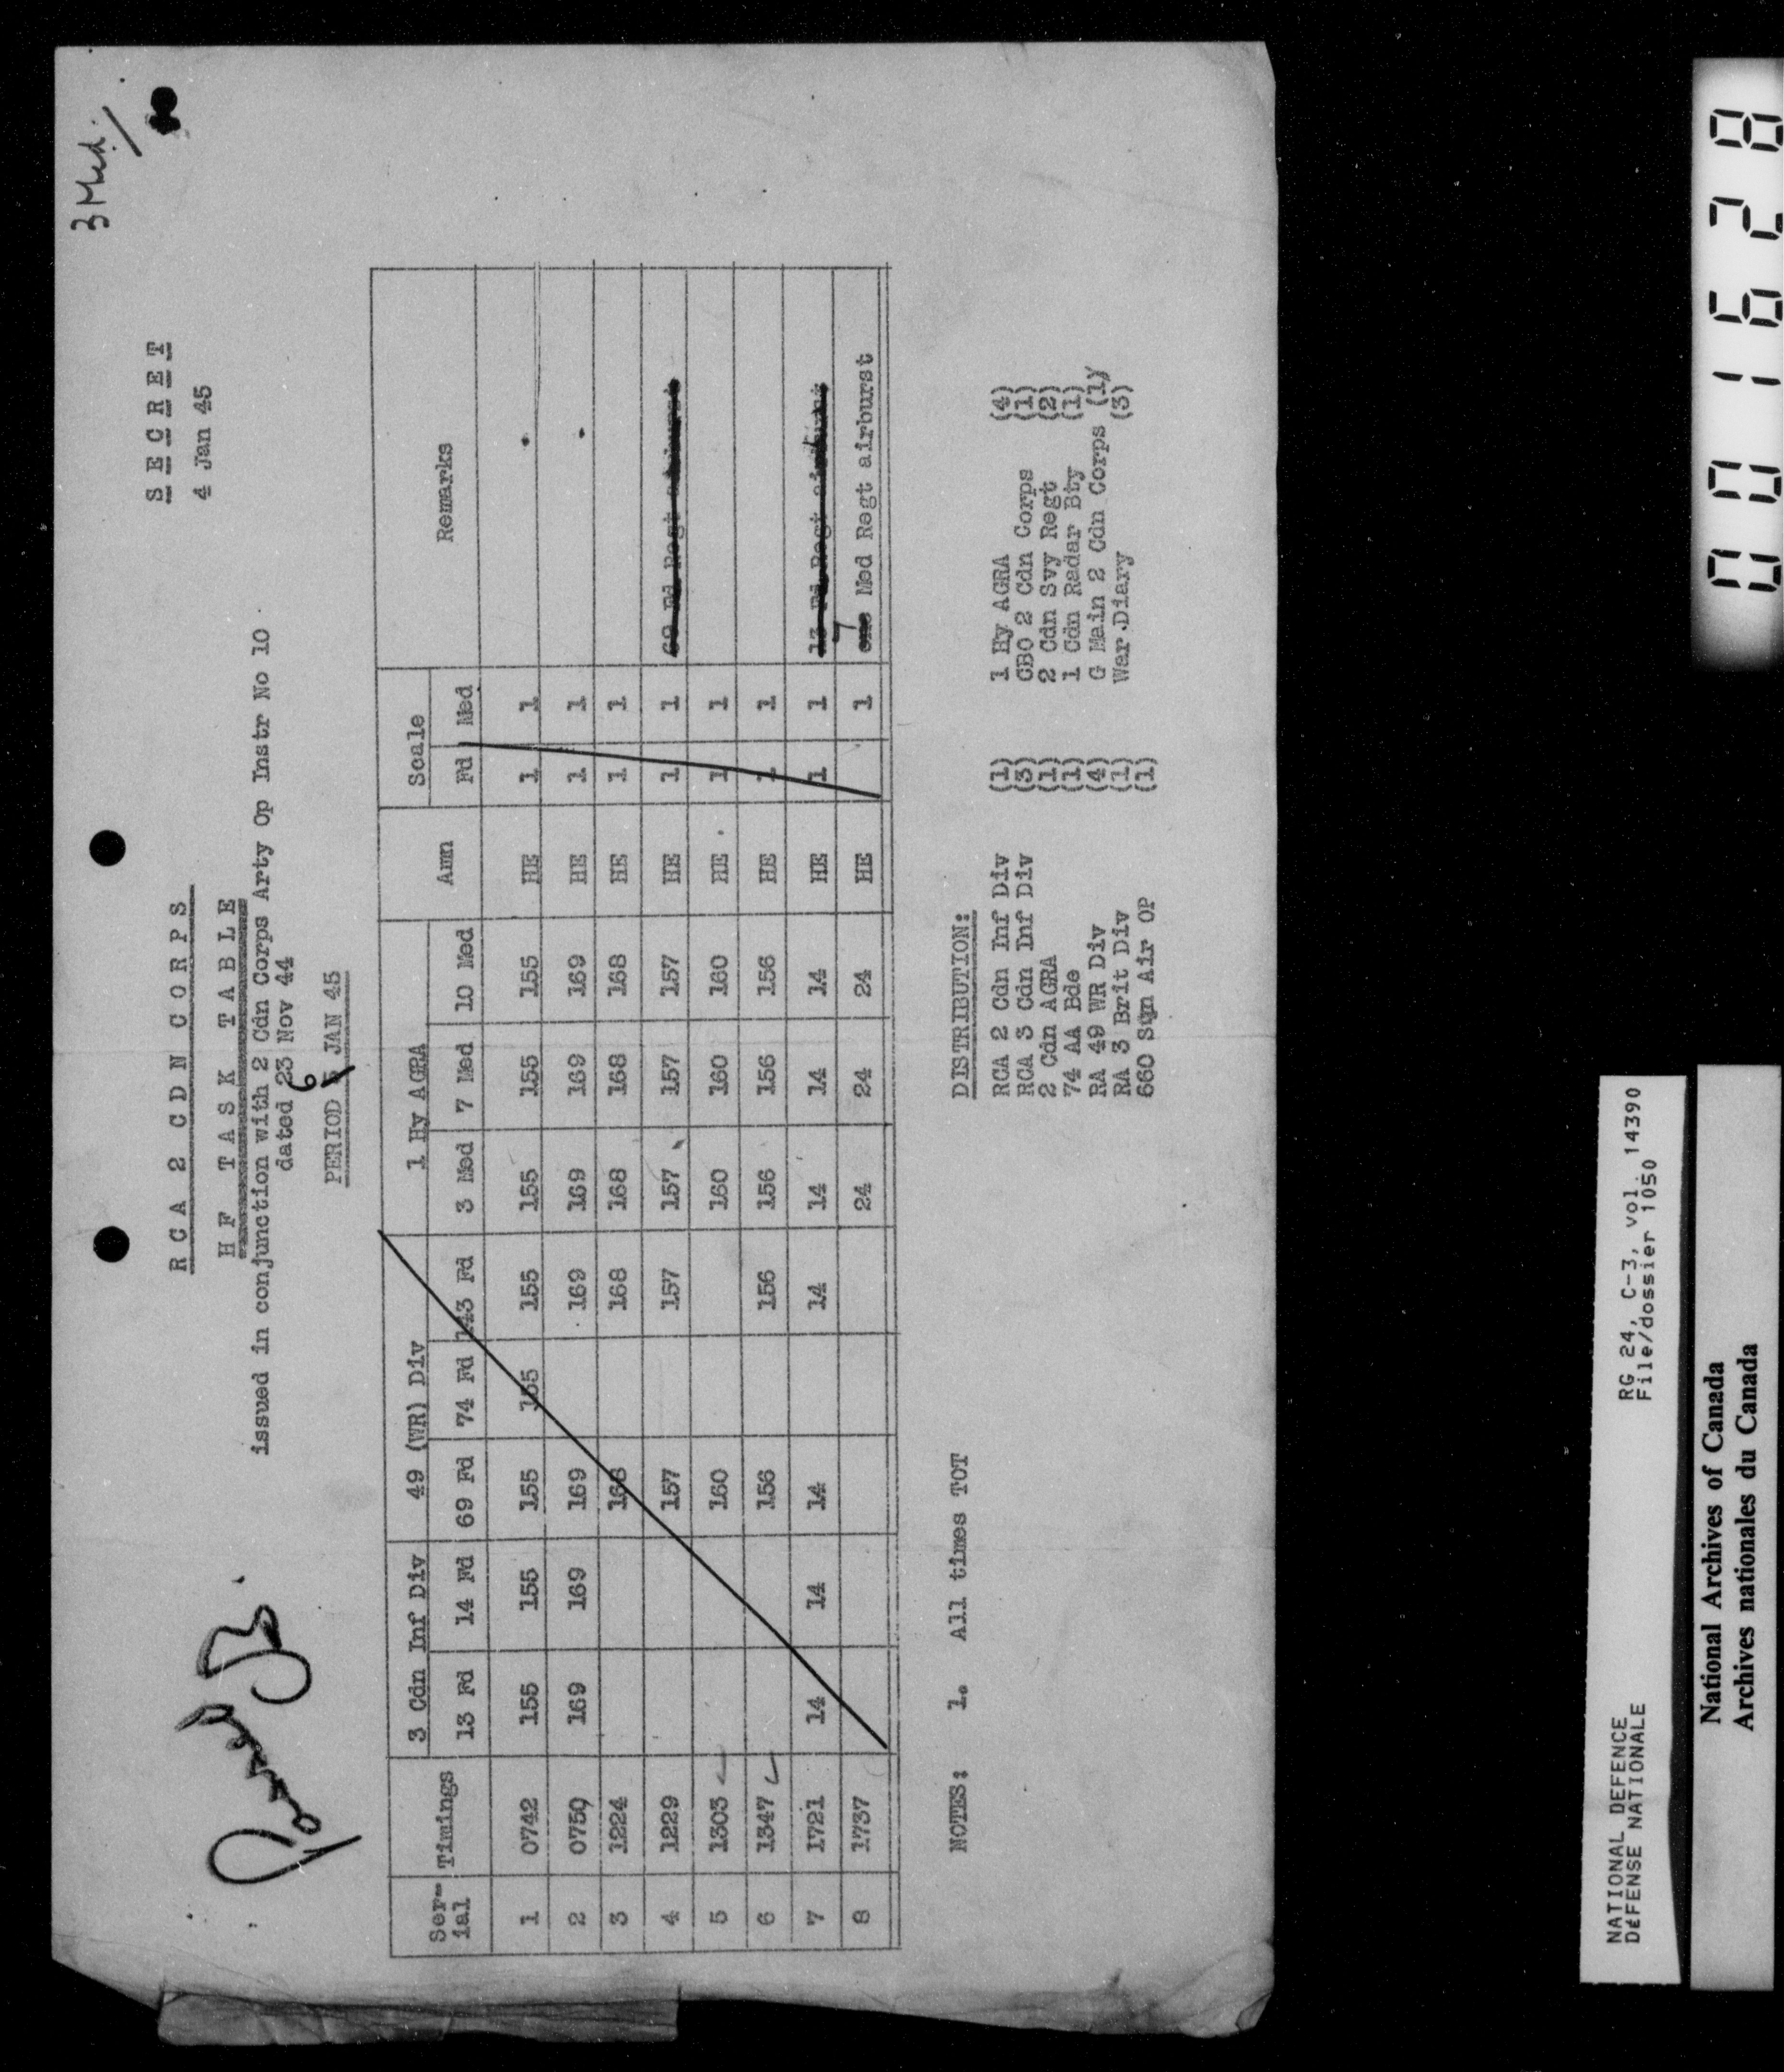 3 Med.
S E C R E T
4 Jan 45
R C A 2 C D N C O R P S
H F T A S K T A B L E
issued in conjunction with 2 Cdn Corps Arty Op Instr No 10
dated 23 Nov 44
6
PERIOD 5 JAN 45
Ser-ial Timings 3 Cdn Inf Div 49 (WR) Div 1 Hy AGRA Amn Scale Remarks
13 Fd 14 Fd 69 Fd 74 Fd 143 Fd 3 Med 7 Med 10 Med Fd Med
1 0742 155 155 155 155 155 155 155 155 HE 1 1
2 0750 169 169 169 169 169 169 169 HE 1 1
3 1224 168 168 168 168 168 HE 1 1
4 1229 157 157 157 157 157 HE 1 1 69 Fd Regt airburst
5 1303 160 160 160 160 HE 1 1
6 1347 156 156 156 156 156 HE 1 1
7 1721 14 14 14 14 14 14 14 HE 1 1 13 Fd Regt airburst
8 1737 24 24 24 HE 1 one 7 Med Regt airburst
NOTES: 1. All times TOT
DISTRIBUTION:
RCA 2 Cdn Inf Div (1)
RCA 3 Cdn Inf Div (3)
2 Cdn AGRA (1)
74 AA Bde (1)
RA 49 WR Div (4)
RA 3 Brit Div (1)
660 Sqn Air OP (1)
1 Hy AGRA (4)
CBO 2 Cdn Corps (1)
2 Cdn Svy Regt (2)
1 Cdn Radar Bty (1)
G Main 2 Cdn Corps (1)
War Diary (3)
NATIONAL DEFENCE
DÉFENSE NATIONALE
RG 24, C-3, vol. 14390
File/dossier 1050
National Archives of Canada
Archives nationales du Canada
001628